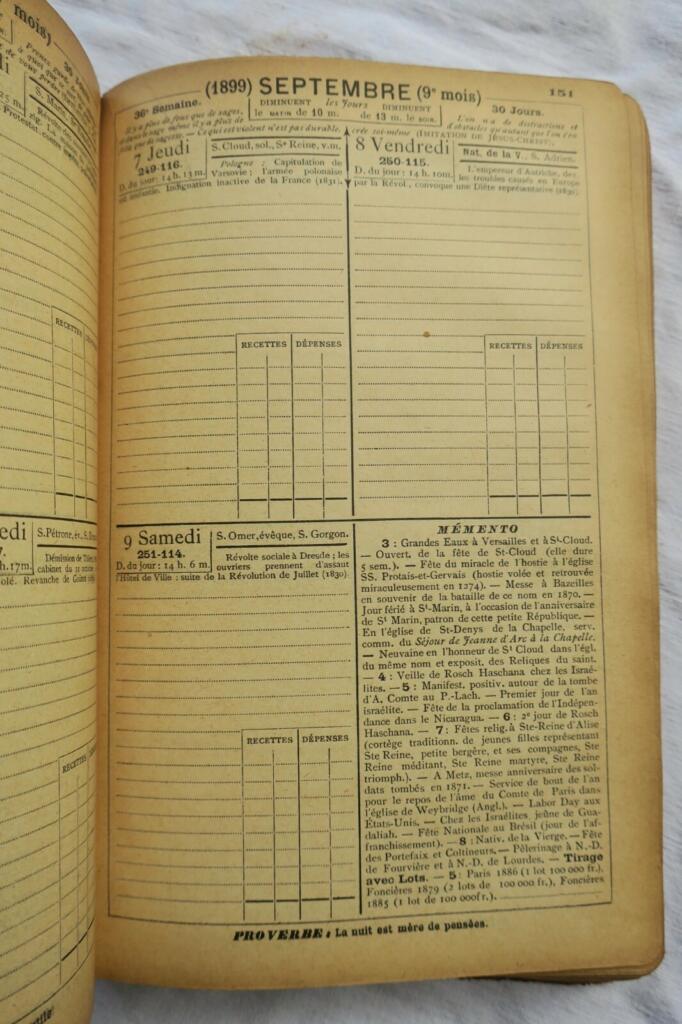 mois)
(1899) SEPTEMBRE (9e mois)
151
36e Semaine.
DIMINUENT les Jours DIMINUENT
le MATIN de 10 m. de 13 m. le SOIR.
30 Jours.
Il y a plus de fous que de sages,
et dans le sage même il y a plus de
folie que de sagesse. — Ce qui est violent n'est pas durable.
L'on n'a de distractions et
d'obstacles qu'autant que l'on s'en
crée soi-même (IMITATION DE JÉSUS-CHRIST).
7 Jeudi
249-116.
D. du jour: 14 h. 13 m.
S. Cloud, sol., Se Reine, v.m.
Pologne : Capitulation de
Varsovie ; l'armée polonaise
est anéantie. Indignation inactive de la France (1831).
8 Vendredi
250-115.
D. du jour: 14 h. 10m.
Nat. de la V., S. Adrien.
L'empereur d'Autriche, dev.
les troubles causés en Europe
par la Révol., convoque une Diète représentative (1830).
RECETTES DÉPENSES
RECETTES DÉPENSES
9 Samedi
251-114.
D. du jour : 14 h. 6 m.
S. Omer, évêque, S. Gorgon.
Révolte sociale à Dresde ; les
ouvriers prennent d'assaut
l'Hôtel de Ville : suite de la Révolution de Juillet (1830).
RECETTES DÉPENSES
MÉMENTO
3 : Grandes Eaux à Versailles et à St-Cloud.
— Ouvert. de la fête de St-Cloud (elle dure
5 sem.). — Fête du miracle de l'hostie à l'église
SS. Protais-et-Gervais (hostie volée et retrouvée
miraculeusement en 1274). — Messe à Bazeilles
en souvenir de la bataille de ce nom en 1870. —
Jour férié à St-Marin, à l'occasion de l'anniversaire
de St Marin, patron de cette petite République. —
En l'église de St-Denys de la Chapelle, serv.
comm. du Séjour de Jeanne d'Arc à la Chapelle.
— Neuvaine en l'honneur de St Cloud dans l'égl.
du même nom et exposit. des Reliques du saint.
— 4 : Veille de Rosch Haschana chez les Israé-
lites. — 5 : Manifest. positiv. autour de la tombe
d'A. Comte au P.-Lach. — Premier jour de l'an
israélite. — Fête de la proclamation de l'Indépen-
dance dans le Nicaragua. — 6 : 2e jour de Rosch
Haschana. — 7 : Fêtes relig. à Ste-Reine d'Alise
(cortège traditionn. de jeunes filles représentant
Ste Reine, petite bergère, et ses compagnes, Ste
Reine méditant, Ste Reine martyre, Ste Reine
triomph.). — A Metz, messe anniversaire des sol-
dats tombés en 1871. — Service de bout de l'an
pour le repos de l'âme du Comte de Paris dans
l'église de Weybridge (Angl.). — Labor Day aux
États-Unis. — Chez les Israélites, jeûne de Gua-
daliah. — Fête Nationale au Brésil (jour de l'af-
franchissement). — 8 : Nativ. de la Vierge. — Fête
des Portefaix et Coltineurs. — Pèlerinage à N.-D.
de Fourvière et à N.-D. de Lourdes. — Tirage
avec Lots. — 5 : Paris 1886 (1 lot 100 000 fr.),
Foncières 1879 (2 lots de 100 000 fr.), Foncières
1885 (1 lot de 100 000 fr.).
PROVERBE : La nuit est mère de pensées.